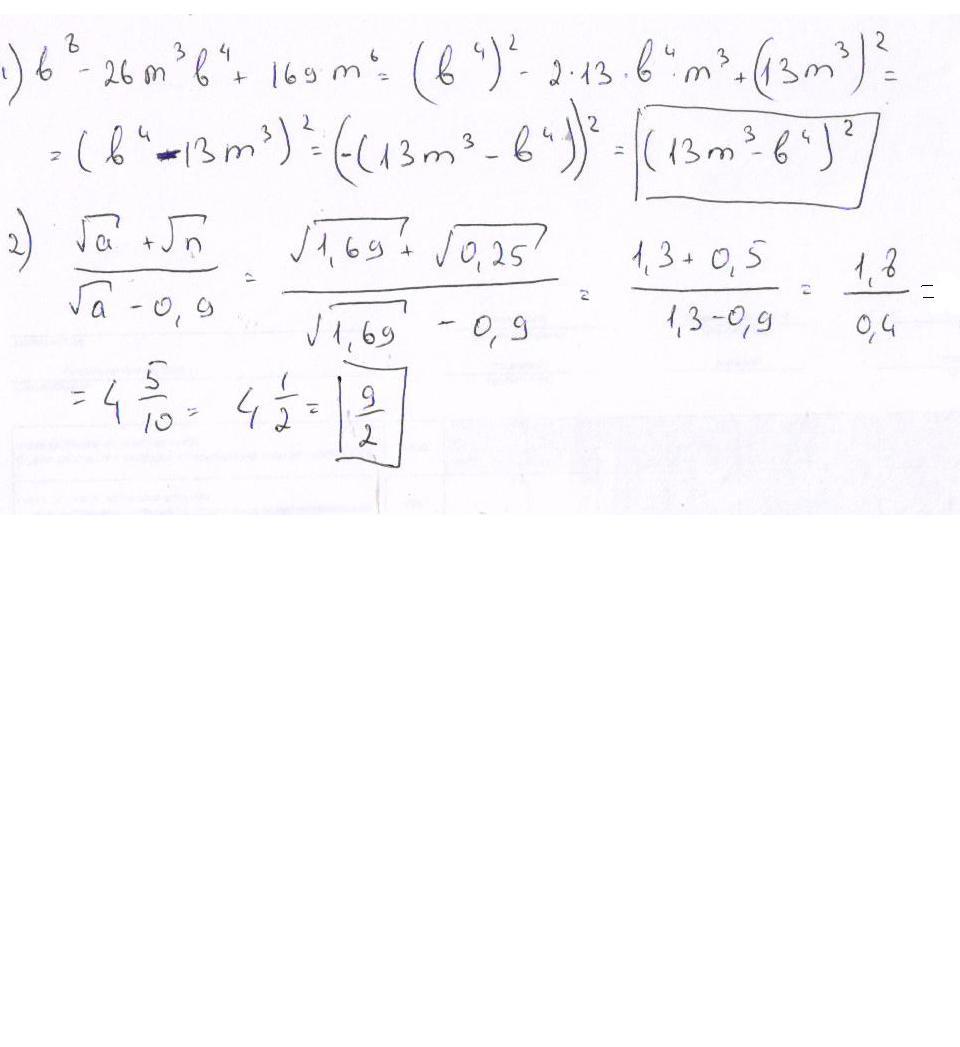 1) b⁸ - 26m³b⁴ + 169m⁶ = (b⁴)² - 2·13·b⁴·m³ + (13m³)² =
= (b⁴ - 13m³)² = (-(13m³ - b⁴))² = (13m³ - b⁴)²
2) (√a + √n)/(√a - 0,9) = (√1,69 + √0,25)/(√1,69 - 0,9) = (1,3 + 0,5)/(1,3 - 0,9) = 1,8/0,4 =
= 4 5/10 = 4 1/2 = 9/2